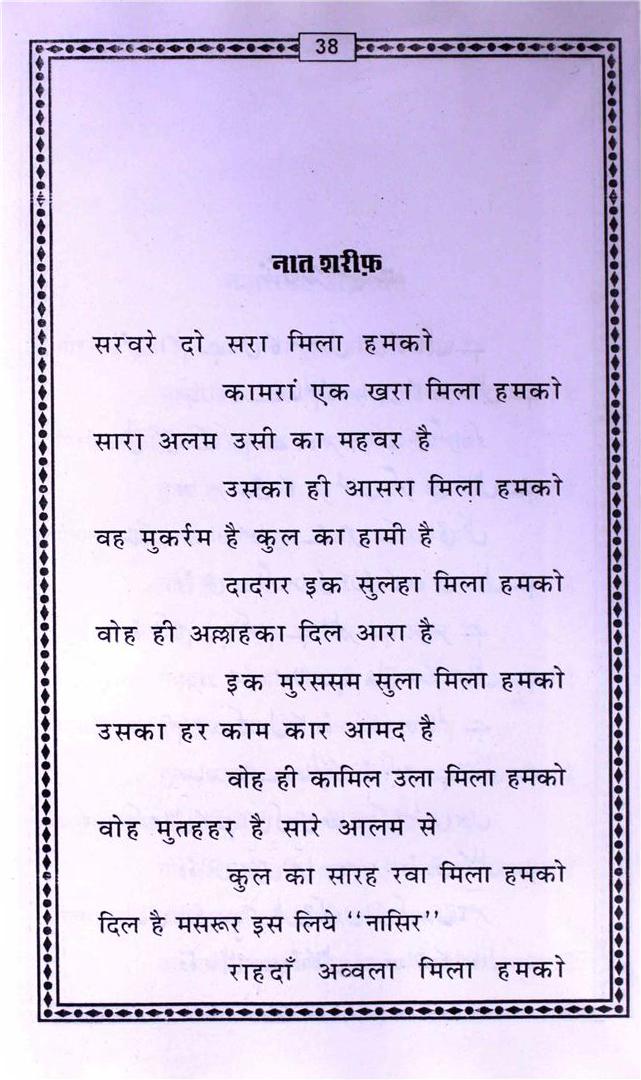 38
नात शरीफ़
सरवरे दो सरा मिला हमको
कामरां एक खरा मिला हमको
सारा अलम उसी का महवर है
उसका ही आसरा मिला हमको
वह मुकर्रम है कुल का हामी है
दादगर इक सुलहा मिला हमको
वोह ही अल्लाहका दिल आरा है
इक मुरससम सुला मिला हमको
उसका हर काम कार आमद है
वोह ही कामिल उला मिला हमको
वोह मुतहहर है सारे आलम से
कुल का सारह रवा मिला हमको
दिल है मसरूर इस लिये ‘‘नासिर’’
राहदाँ अव्वला मिला हमको